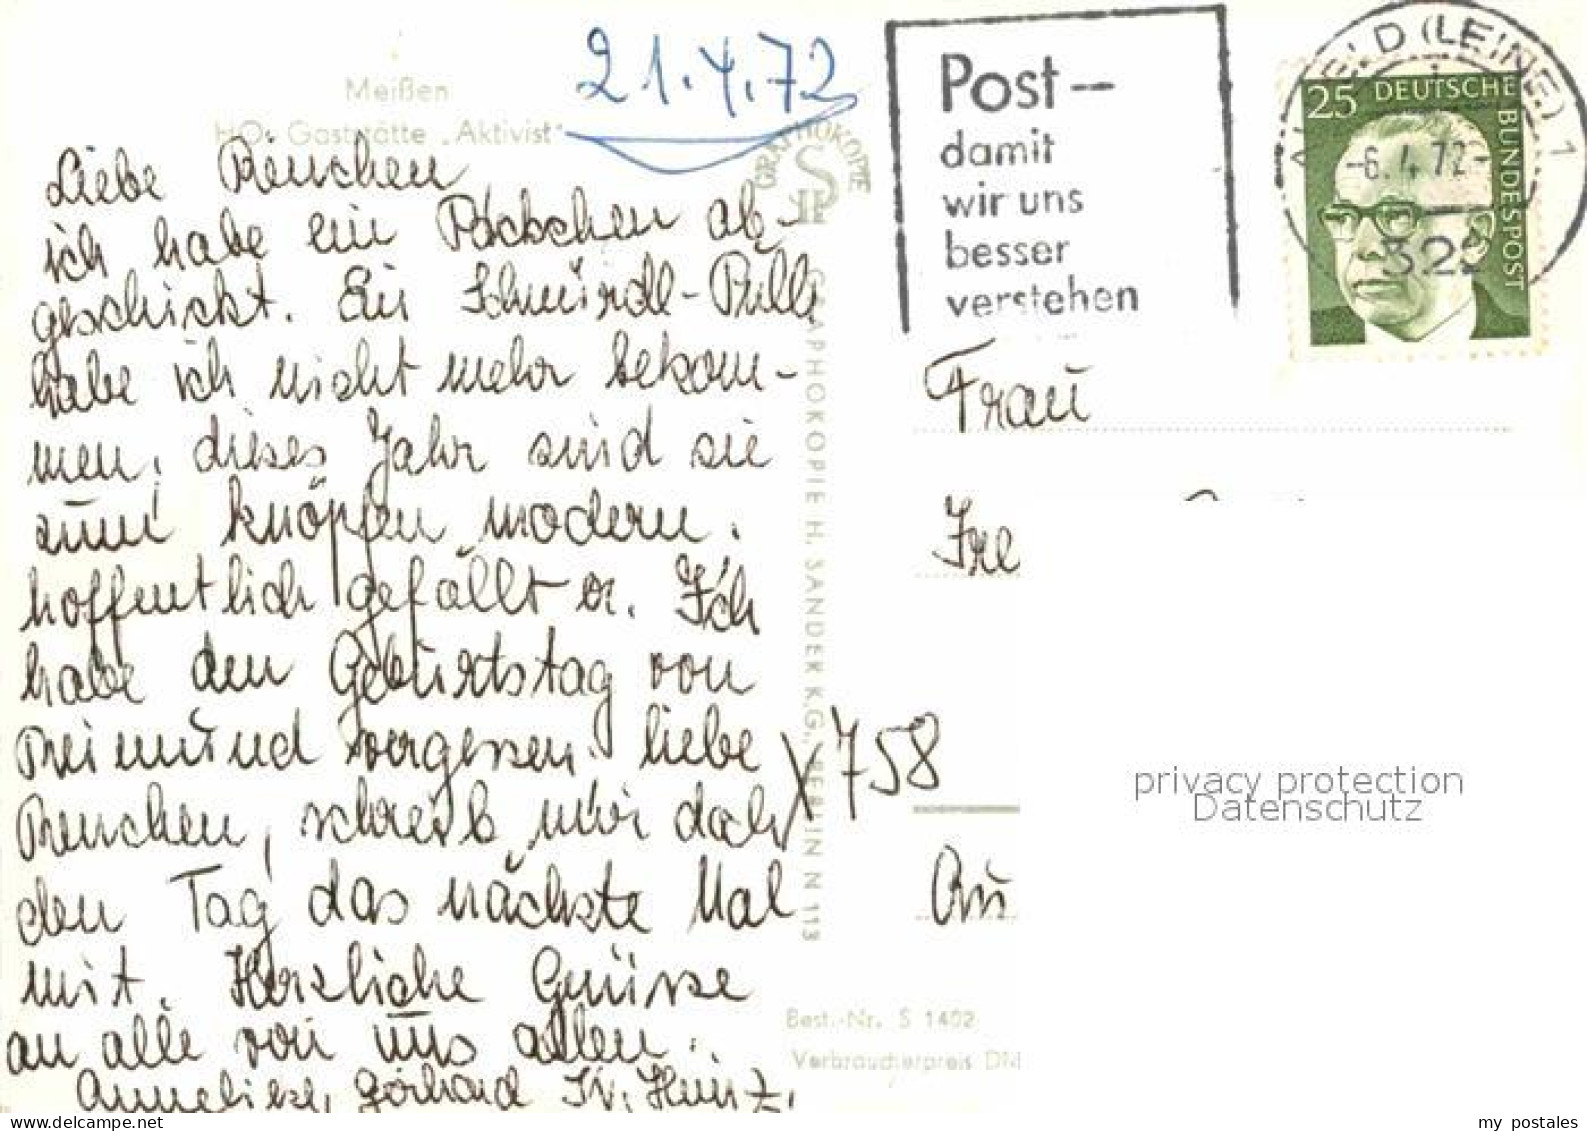 21.4.72
Meißen
HO-Gaststätte „Aktivist"
GRAPHOKOPIE
Liebe Renchen
ich habe ein Päckchen ab-
geschickt. Ein Schnürdl-Pulli
habe ich nicht mehr bekom-
men, dieses Jahr sind sie
zum knöpfen modern.
hoffentlich gefällt er. Ich
habe den Geburtstag von
Reimund vergessen. liebe
Renchen, schreib mir doch
den Tag das nächste Mal
mit. Herzliche Grüsse
an alle von uns allen.
Anneliese, Gerhard u. Heinz.
GRAPHOKOPIE H. SANDER K.G., BERLIN N 113
X 758
Best.-Nr. S 1402
Verbraucherpreis DM
Post-
damit
wir uns
besser
verstehen
ALFELD (LEINE) 1
-6.4.72
322
25 DEUTSCHE BUNDESPOST
Frau
Fre
Au
privacy protection
Datenschutz
my postales